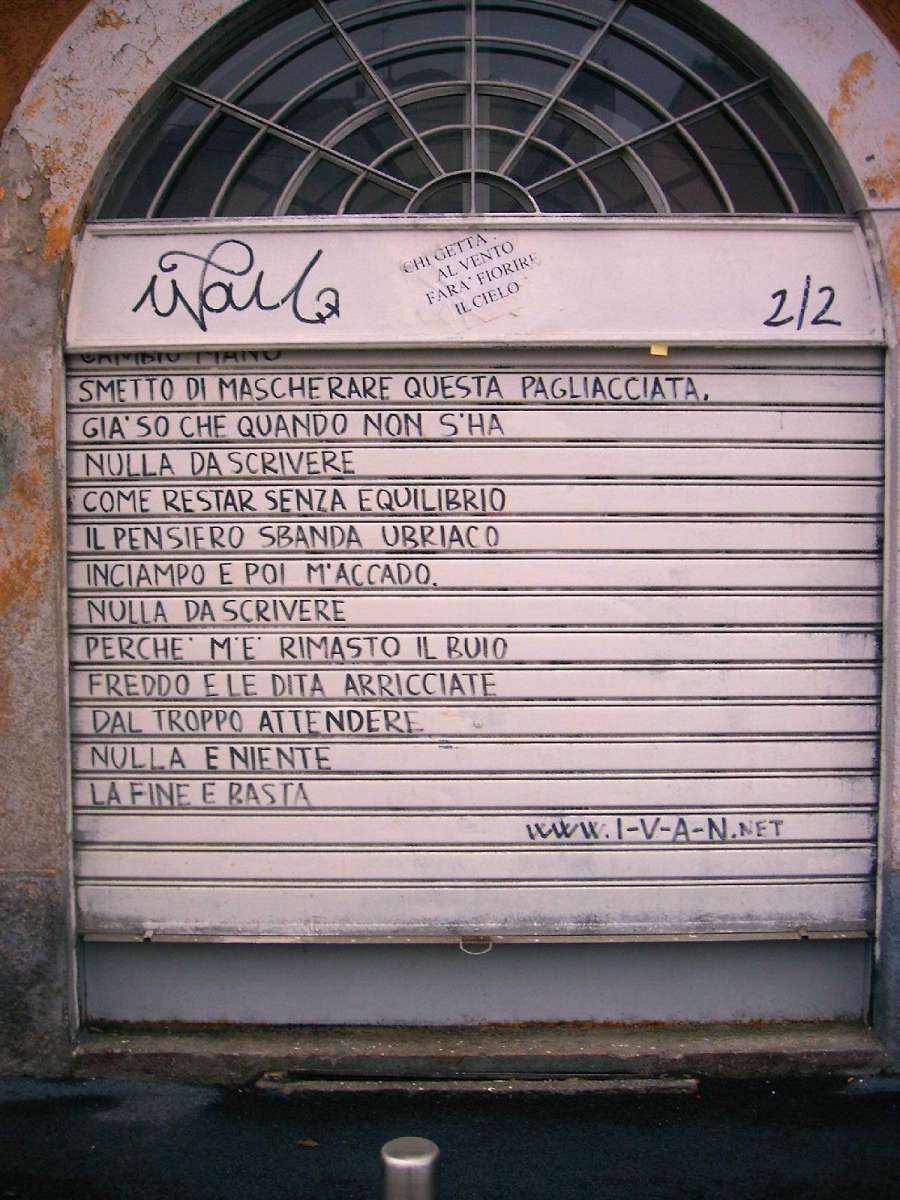 ivan
CHI GETTA
AL VENTO
FARA' FIORIRE
IL CIELO
2/2
CAMBIO MANO
SMETTO DI MASCHERARE QUESTA PAGLIACCIATA.
GIA' SO CHE QUANDO NON S'HA
NULLA DA SCRIVERE
COME RESTAR SENZA EQUILIBRIO
IL PENSIERO SBANDA UBRIACO
INCIAMPO E POI M'ACCADO.
NULLA DA SCRIVERE
PERCHE' M'E' RIMASTO IL BUIO
FREDDO E LE DITA ARRICCIATE
DAL TROPPO ATTENDERE
NULLA E NIENTE
LA FINE E BASTA
WWW.I-V-A-N.NET